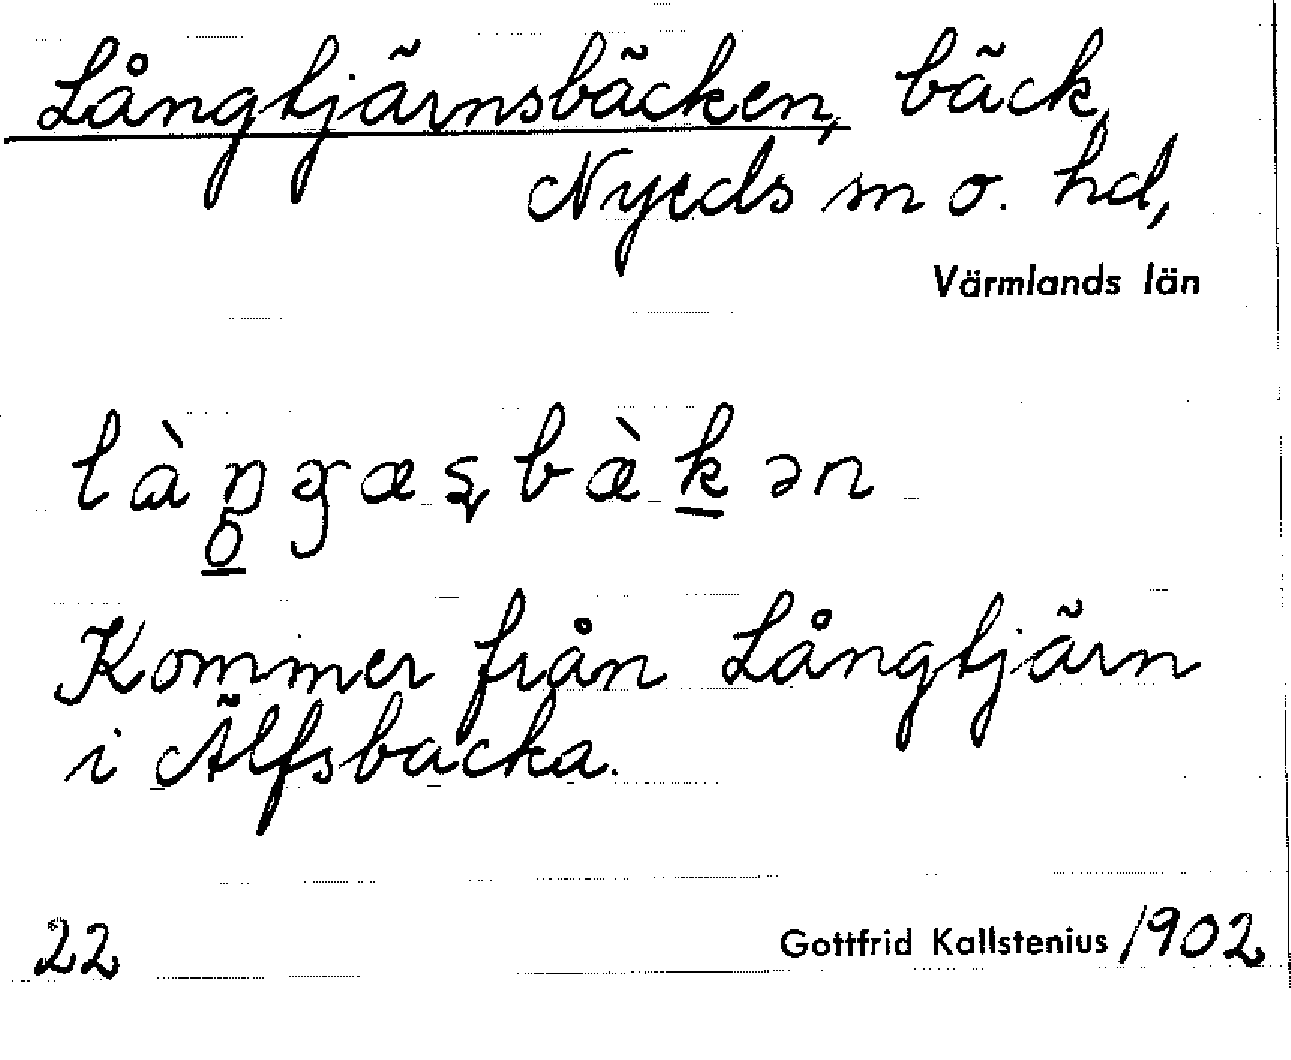 Långtjärnsbäcken, bäck,
Nyeds sn o. hd,
Värmlands län
Kommer från Långtjärn
i Älfsbacka.
22 Gottfrid Kallstenius 1902